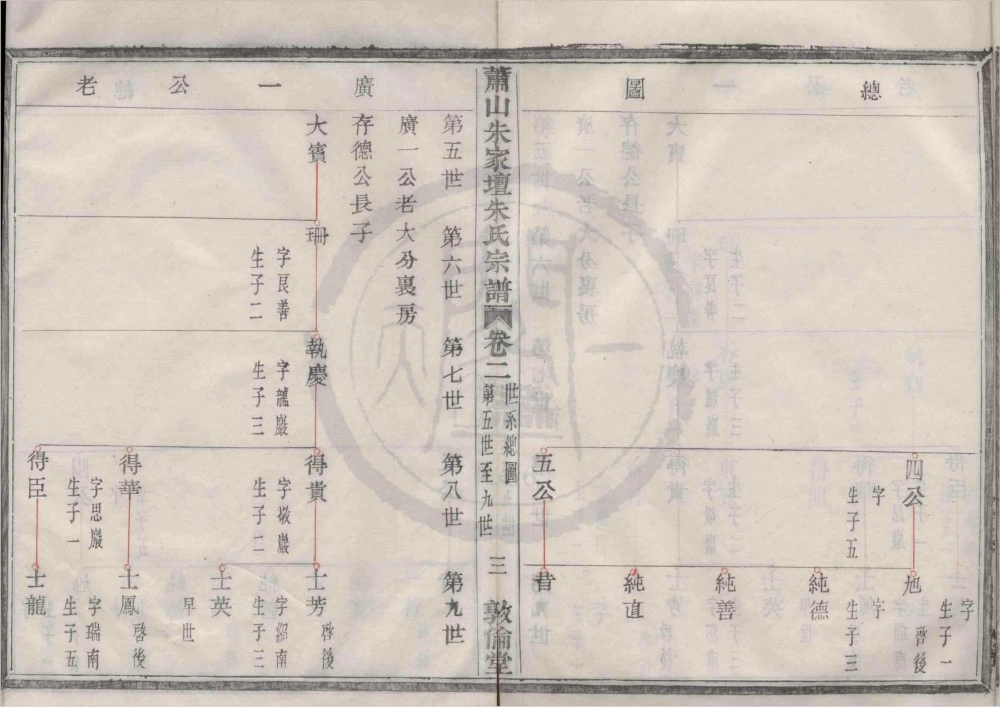 總圖
四公
字
生子五
旭
字
啓後
生子一
純德
字
生子三
純善
純直
五公
昔
蕭山朱家壇朱氏宗譜
卷二
世系總圖
第五世至九世
三
敦倫堂
廣一公老
第五世
第六世
第七世
第八世
第九世
廣一公老大分裏房
存德公長子
大賓
珊
字艮善
生子二
執慶
字龍巖
生子三
得貴
字敬巖
生子二
士芳
啓後
字紹南
生子三
士英
早世
得華
字思巖
生子一
士鳳
啓後
字瑞南
生子五
得臣
士龍